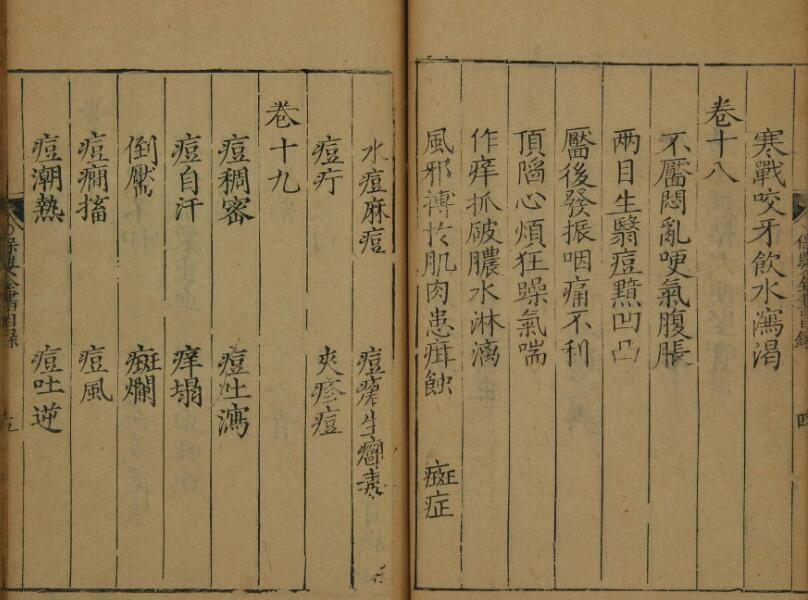 寒戰咬牙飲水瀉渴
卷十八
不靨悶亂哽氣腹脹
两目生翳痘黯凹凸
靨後發振咽痛不利
頂陷心煩狂躁氣喘
作痒抓破膿水淋漓
風邪摶於肌肉患疳蝕 癍症
水痘麻痘 痘瘡生癰毒
痘疔 夾疹痘
卷十九
痘稠密 痘吐瀉
痘自汗 痒塌
倒靨 癍爛
痘癇搐 痘風
痘潮熱 痘吐逆
保嬰全書目錄